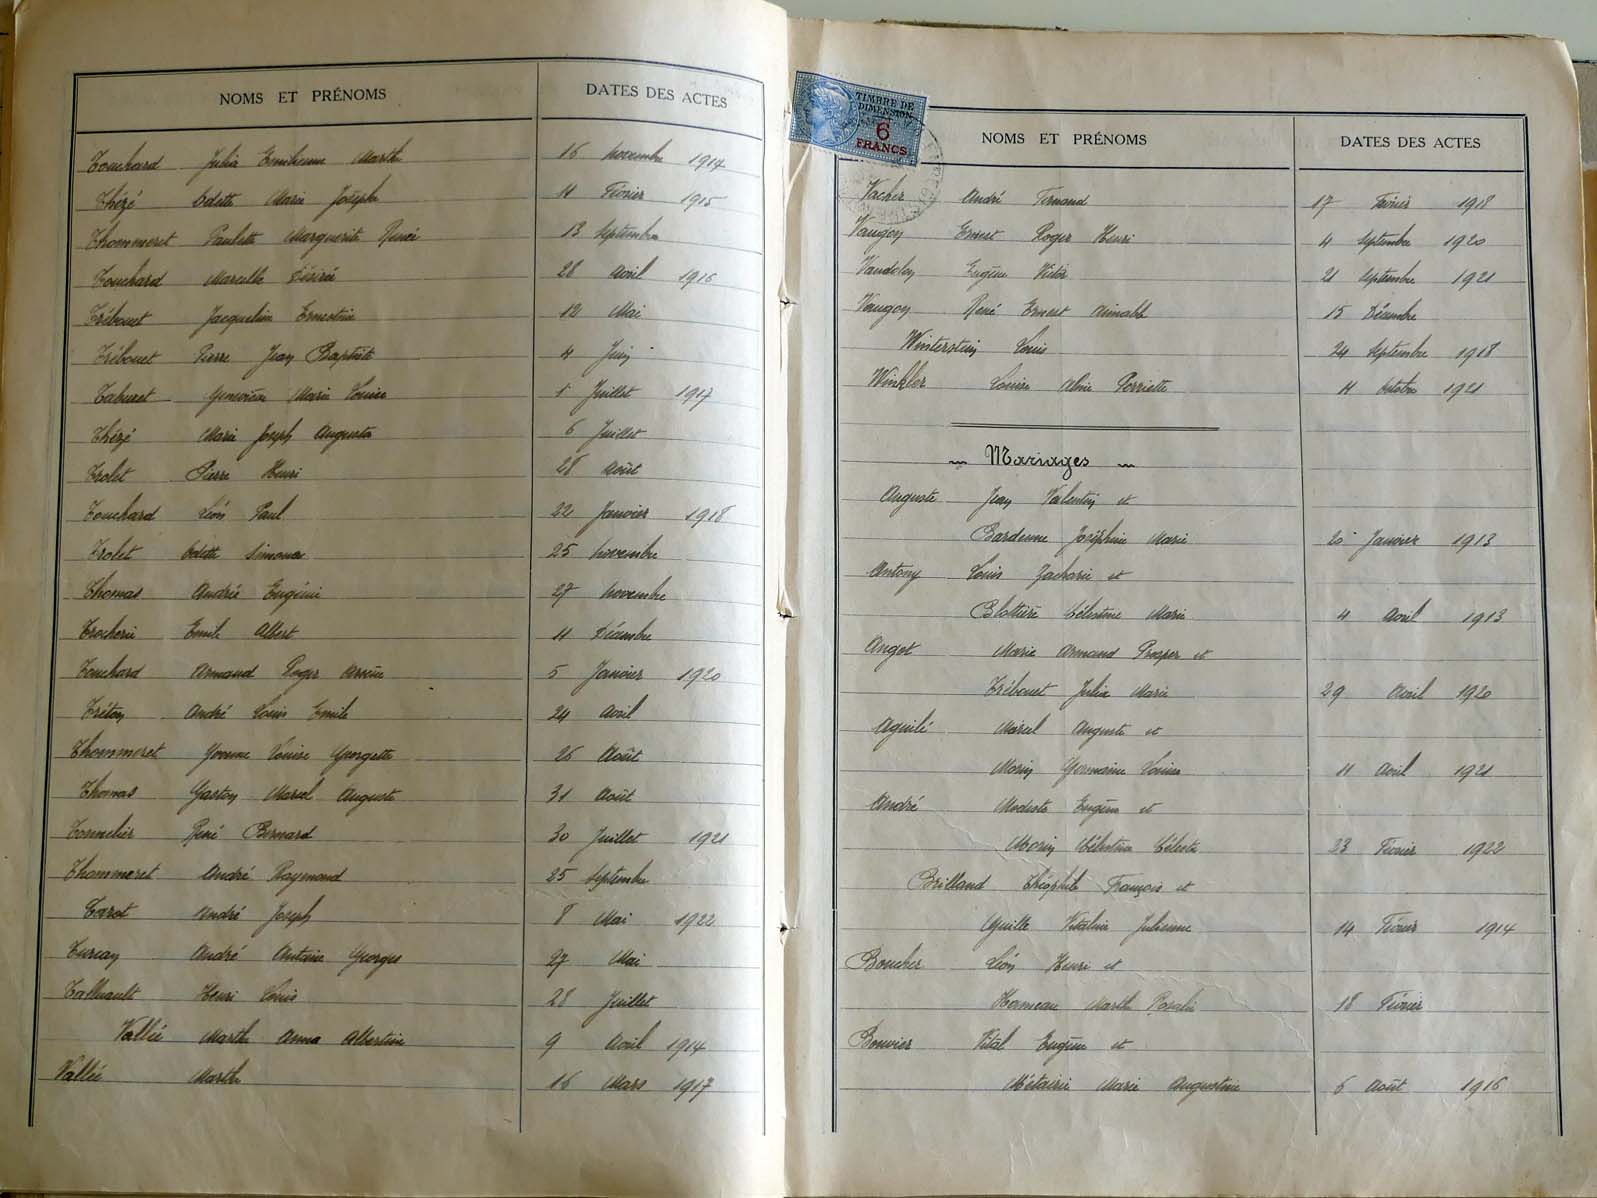 NOMS ET PRÉNOMS DATES DES ACTES
Touchard Julia Emilienne Marthe 16 novembre 1914
Thézé Odette Marie Joseph 11 Février 1915
Thommeret Paulette Marguerite Renée 13 Septembre
Touchard Marcelle Désirée 28 Avril 1916
Trébouet Jacqueline Ernestine 12 Mai
Trébouet Pierre Jean Baptiste 4 Juin
Taburet Geneviève Marie Louise 1 Juillet 1917
Thézé Marie Joseph Augusta 6 Juillet
Trolet Pierre Henri 28 Août
Touchard Léon Paul 22 Janvier 1918
Trolet Odette Simone 25 novembre
Thomas Andrée Eugénie 27 novembre
Trocherie Emile Albert 11 Décembre
Touchard Armand Roger Arsène 5 Janvier 1920
Tréton André Louis Emile 24 Avril
Thommeret Yvonne Louise Georgette 26 Août
Thomas Gaston Marcel Auguste 31 Août
Tonnelier René Bernard 30 Juillet 1921
Thommeret André Raymond 25 Septembre
Tarot André Joseph 8 Mai 1922
André Antoine Georges 27 Mai
Henri Louis 28 Juillet
Vallée Marthe Anna Albertine 9 Août 1914
Vallée Marthe 16 Mars 1917
TIMBRE DE
DIMENSION
6
FRANCS
NOMS ET PRÉNOMS DATES DES ACTES
Vacher André Fernand 17 Février 1918
Vaugon Ernest Roger Henri 4 Septembre 1920
Eugène Victor 21 Septembre 1921
Vaugon René Ernest Aimable 15 Décembre
Winterstein Louis 24 Septembre 1918
Winkler Louise Aline Pierrette 11 Octobre 1921
~ Mariages ~
Auguste Jean Valentin et
Bardenne Joséphine Marie 20 Janvier 1913
Antony Louis Zacharie et
Blottière Célestine Marie 4 Avril 1913
Anget Marie Armand Prosper et
Trébouet Julia Marie 29 Avril 1920
Aguilé Marcel Auguste et
Morin Germaine Louise 11 Avril 1921
André Modeste Eugène et
Morin Célestine Céleste 23 Février 1922
Brilland Théophile François et
Vitaline Julienne 14 Février 1914
Boucher Léon Henri et
Hameau Marthe Rosalie 18 Février
Bouvier Vital Eugène et
Métairie Marie Augustine 6 Août 1916